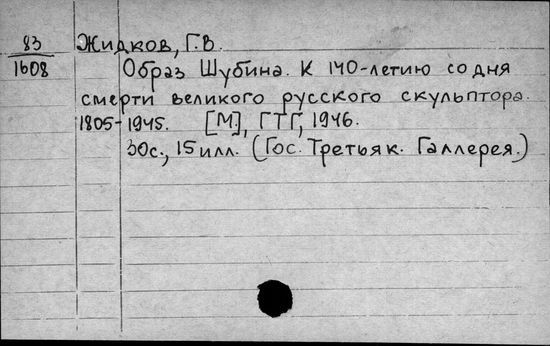 83 Жидков, Г.В.
1608 Образ Шубина. К 140-летию со дня
смерти великого русского скульптора.
1805-1945. [М], ГТГ, 1946.
30с., 15 илл. (Гос. Третьяк. Галлерея.)